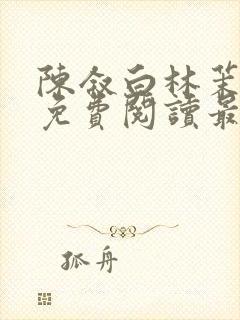 陳叙白林茉
免費閱讀最
孤舟